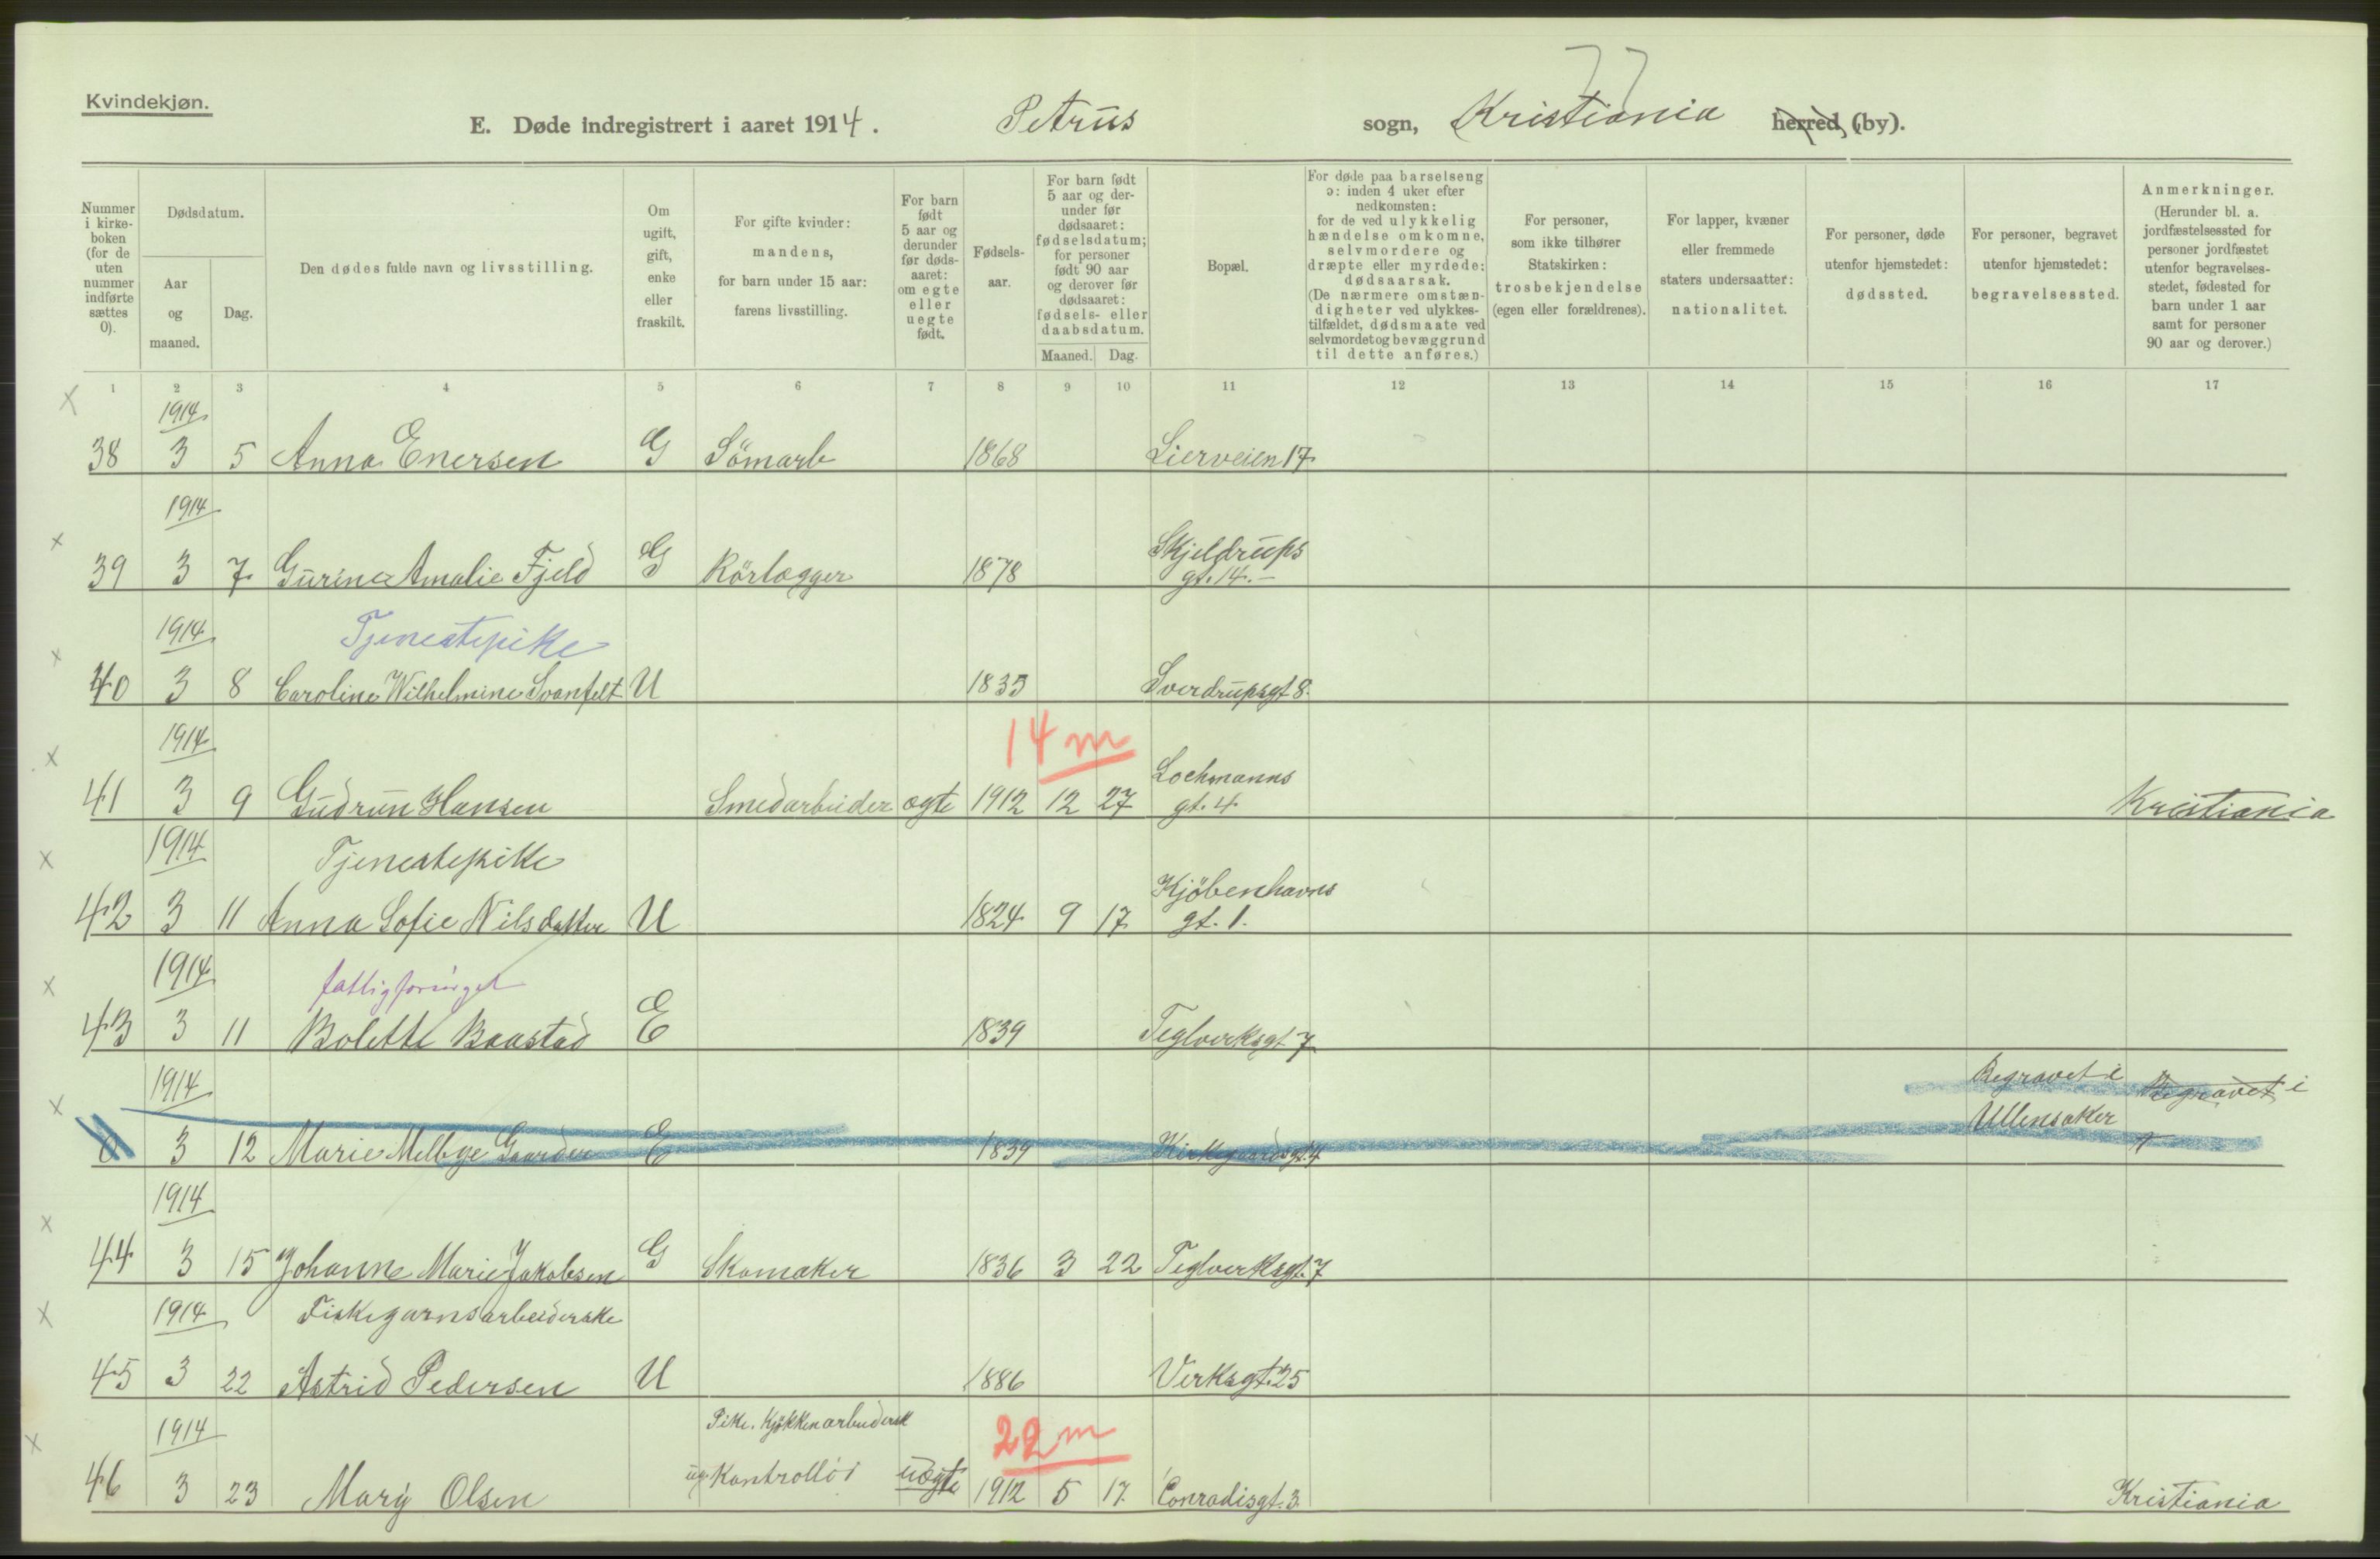 77
Kvindekjøn.
E. Døde indregistrert i aaret 1914. Petrus sogn, Kristiania herred, (by).
Nummer i kirke-boken (for de uten nummer indførte sættes 0).
Dødsdatum.
Aar og maaned.
Dag.
Den dødes fulde navn og livsstilling.
Om ugift, gift, enke eller fraskilt.
For gifte kvinder: mandens, for barn under 15 aar: farens livsstilling.
For barn født 5 aar og derunder før døds-aaret: om egte eller uegte født.
Fødsels-aar.
For barn født 5 aar og der-under før dødsaaret: fødselsdatum; for personer født 90 aar og derover før dødsaaret: fødsels- eller daabsdatum.
Maaned. Dag.
Bopæl.
For døde paa barselseng ɔ: inden 4 uker efter nedkomsten; for de ved ulykkelig hændelse omkomne, selvmordere og dræpte eller myrdede: dødsaarsak. (De nærmere omstæn-digheter ved ulykkes-tilfældet, dødsmaate ved selvmordet og bevæggrund til dette anføres.)
For personer, som ikke tilhører Statskirken: trosbekjendelse (egen eller forældrenes).
For lapper, kvæner eller fremmede staters undersaatter: nationalitet.
For personer, døde utenfor hjemstedet: dødssted.
For personer, begravet utenfor hjemstedet: begravelsessted.
Anmerkninger. (Herunder bl. a. jordfæstelsessted for personer jordfæstet utenfor begravelses-stedet, fødested for barn under 1 aar samt for personer 90 aar og derover.)
1 2 3 4 5 6 7 8 9 10 11 12 13 14 15 16 17
x 1914
38 3 5 Anna Enersen G Sömarb 1868 Lierveien 17
1914
x Skjeldrups
39 3 7 Gurine Amalie Fjeld G Rörlægger 1878 gt. 14. –
1914 Tjenestepike
x
40 3 8 Caroline Wilhelmine Svanfelt U 1835 Sverdrupsgt 8.
1914 14 m
x Lochmanns
41 3 9 Gudrun Hansen Smedarbeider ægte 1912 12 27 gt. 4 Kristiania
x 1914 Tjenestepike
Kjöbenhavns
42 3 11 Anna Sofie Nilsdatter U 1824 9 17 gt. 1.
x 1914 fattigforsörget
43 3 11 Bolette Baastad E 1839 Teglverksgt 7
x 1914 Begravet i Begravet i
0 3 12 Marie Melbye Gaarder E 1839 Kirkegaardsgt. 4 Ullensaker
1914
x
44 3 15 Johanne Marie Jakobsen G Skomaker 1836 3 22 Teglverksgt. 7
x 1914 Fiskegarnsarbeiderske
45 3 22 Astrid Pedersen U 1886 Verksgt. 25
x 1914 Pike. Kjökkenarbeidersk 22 m
46 3 23 Mary Olsen ug. Kontrollör uægte 1912 5 17. Conradisgt. 3. Kristiania